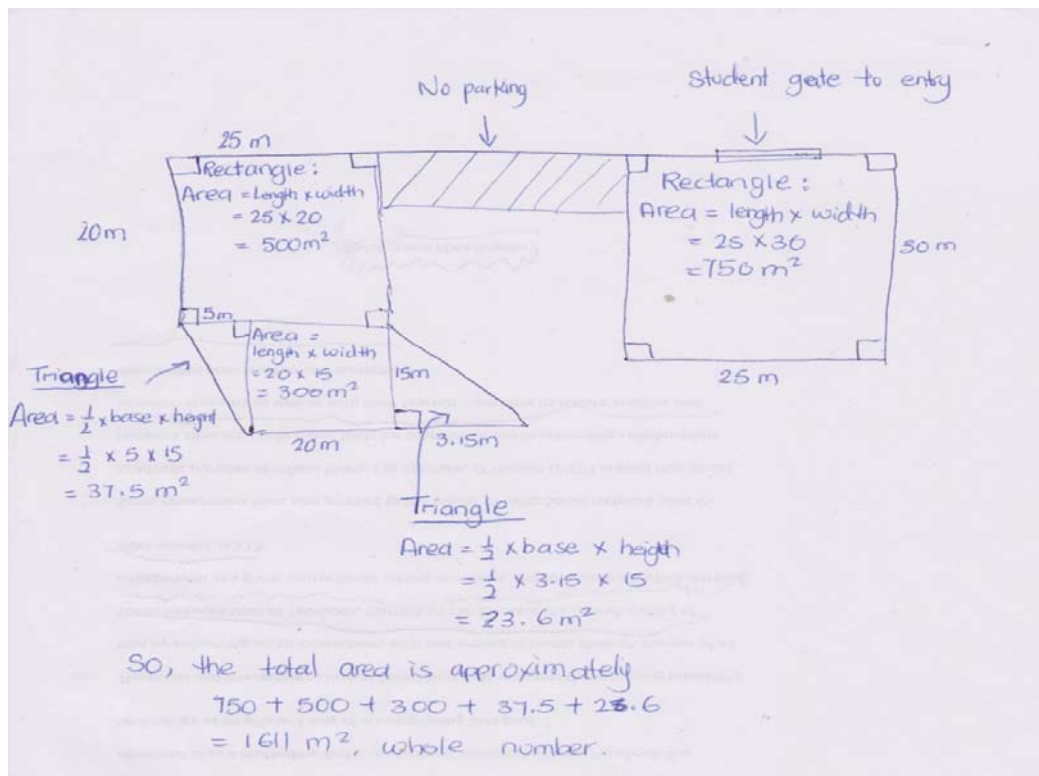 No parking
Student gate to entry
25 m
Rectangle:
Area = Length x width
= 25 x 20
= 500m²
20m
Rectangle:
Area = length x width
= 25 x 30
= 750 m²
30 m
25 m
5m
Area =
length x width
= 20 x 15
= 300m²
15m
20m
3.15m
Triangle
Area = 1/2 x base x height
= 1/2 x 5 x 15
= 37.5 m²
Triangle
Area = 1/2 x base x heigth
= 1/2 x 3.15 x 15
= 23.6 m²
So, the total area is approximately
750 + 500 + 300 + 37.5 + 23.6
= 1611 m². whole number.